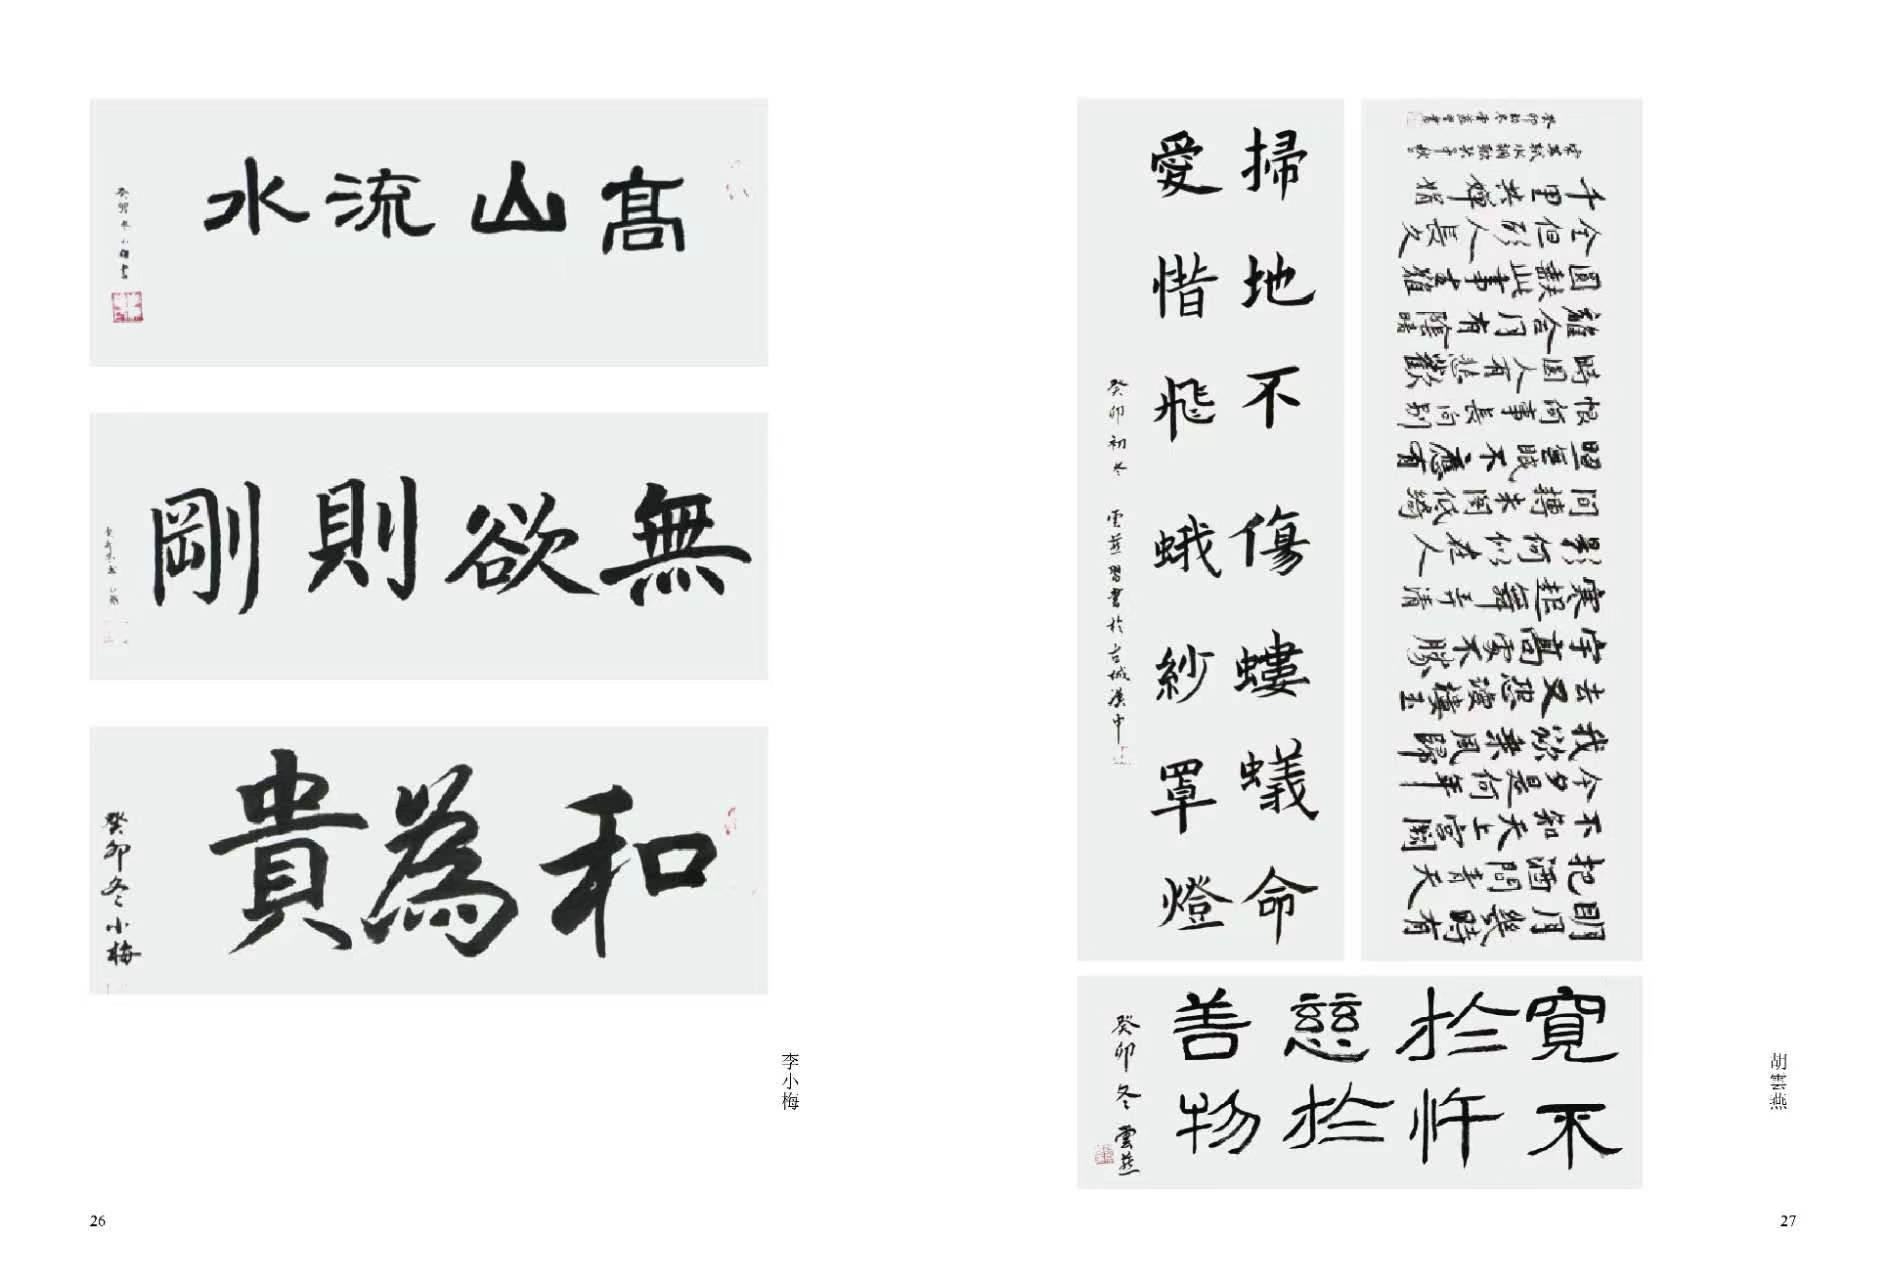 高山流水
癸卯冬小梅書
無欲則剛
和為貴
癸卯冬小梅
李小梅
26
明月幾時有
把酒問青天
不知天上宮闕
今夕是何年
我欲乘風歸
去又恐瓊樓玉
宇高處不勝
寒起舞弄清
影何似在人
間轉朱閣低綺
照無眠不應有
恨何事長向別
時圓人有悲歡
離合月有陰晴
圓缺此事古難
全但願人長久
千里共嬋娟
宋蘇軾水調歌頭
癸卯初冬雲燕習書
掃地不傷螻蟻命
愛惜飛蛾紗罩燈
癸卯初冬 雲燕習書於古城漢中
寬不
於忤
慈於
善物
癸卯冬雲燕
胡雲燕
27